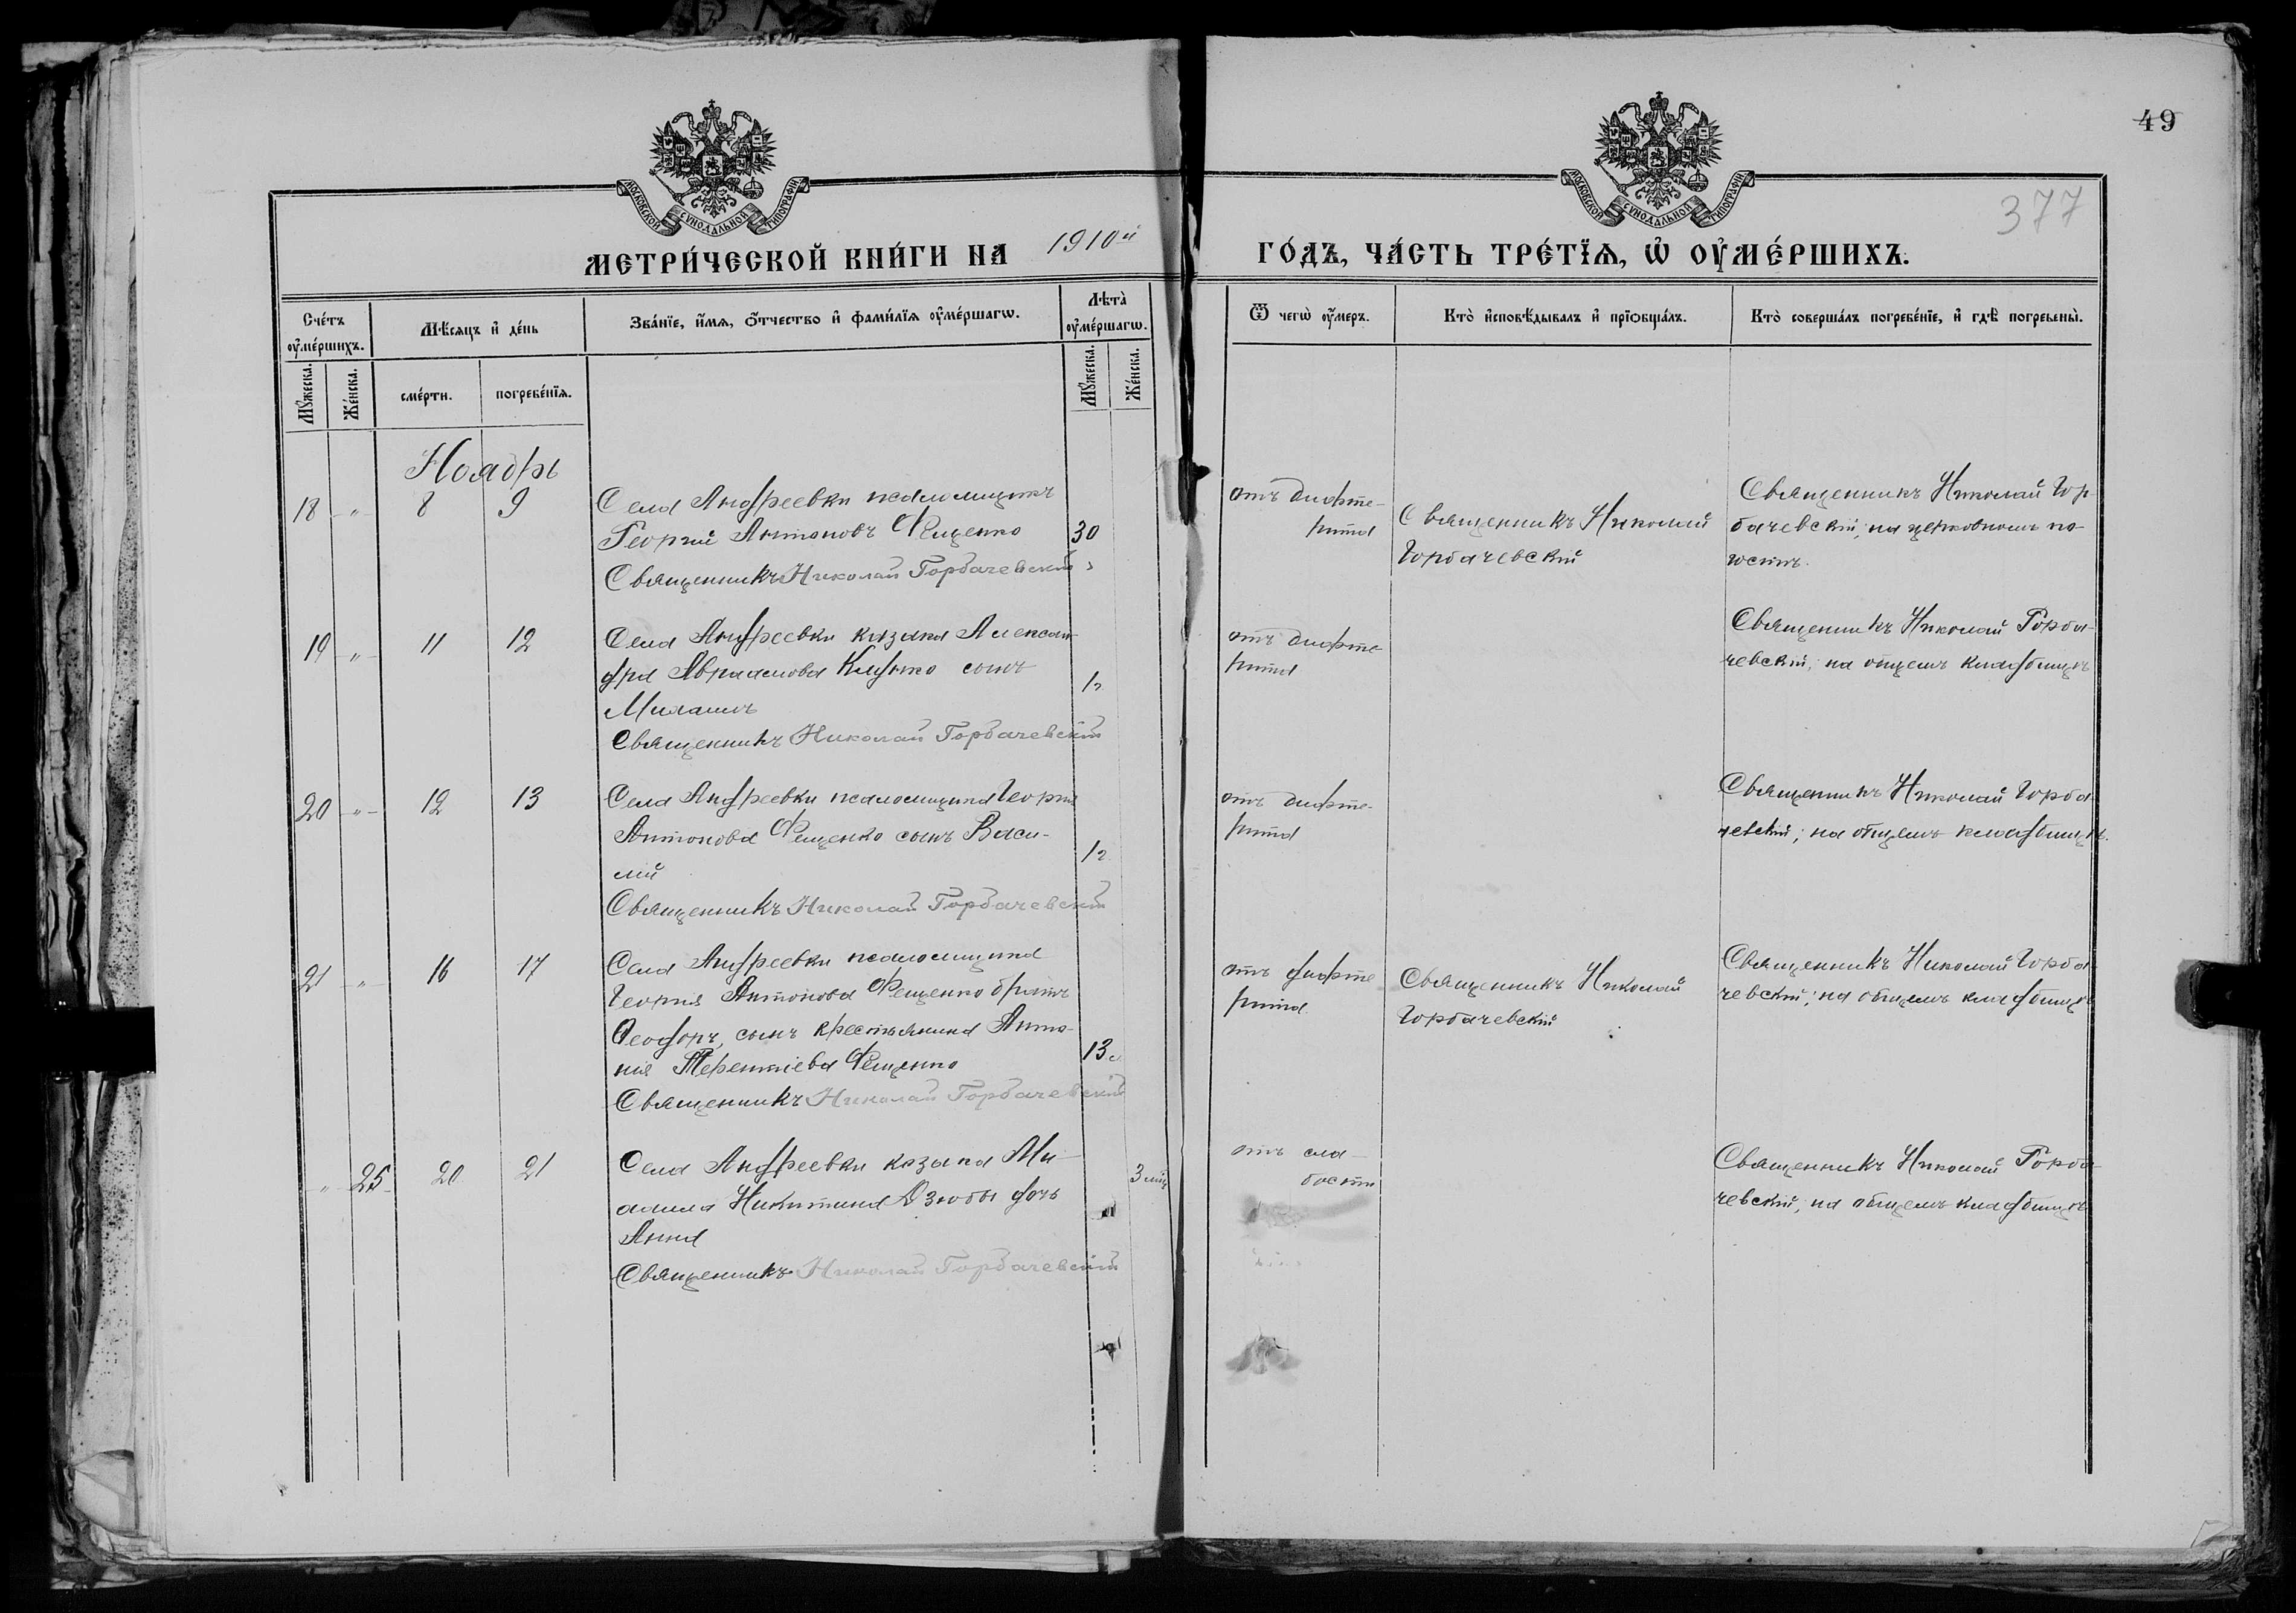 49
377
МОСКОВСКОЙ СѴНОДАЛЬНОЙ ТИПОГРАФІИ.
МОСКОВСКОЙ СѴНОДАЛЬНОЙ ТИПОГРАФІИ.
МЕТРИ́ЧЕСКОЙ КНИ́ГИ НА 1910й ГО́ДЪ, ЧА́СТЬ ТРЕ́ТЇѦ, Ѡ҆ ОУ҆МЕ́РШИХЪ.
Сче́тъ оу҆ме́ршихъ.
Мѣ́сяцъ и҆ де́нь
Зва́нїе, и҆́мѧ, ѻ҆́тчество и҆ фами́лїѧ оу҆ме́ршагѡ.
Лѣта̀ оу҆ме́ршагѡ.
Ѿ чегѡ̀ оу҆́меръ.
Кто̀ и҆сповѣ́дывалъ и҆ прїѡбща́лъ.
Кто̀ соверша́лъ погребе́нїе, и҆ гдѣ̀ погребены̀.
Мꙋ́жеска.
Же́нска.
сме́рти.
погребе́нїѧ.
Мꙋ́жеска.
Же́нска.
Ноябрь
18 „ 8 9
Села Андреевки псаломщикъ
Георгій Антоновъ Фещенко 30
Священникъ Николай Горбачевскій
отъ дифте-
рита
Священникъ Николай
Горбачевскій
Священникъ Николай Гор-
бачевскій, на церковномъ по-
гостѣ.
19 „ 11 12
Села Андреевки казака Алексан-
дра Авраамова сынъ
Михаилъ
Священникъ Николай Горбачевскій
отъ дифте-
рита
Священникъ Николай Горба-
чевскій, на общемъ кладбищѣ
20 „ 12 13
Села Андреевки псаломщика Георгія
Антонова Фещенко сынъ Васи-
лій
Священникъ Николай Горбачевскій
отъ дифте-
рита
Священникъ Николай Горба-
чевскій; на общемъ кладбищѣ.
21 „ 16 17
Села Андреевки псаломщика
Георгія Антонова Фещенко братъ
Феодоръ, сынъ крестьянина Анто-
нія Терентіева Фещенко 13
Священникъ Николай Горбачевскій
отъ дифте-
рита
Священникъ Николай
Горбачевскій
Священникъ Николай Горба-
чевскій; на общемъ кладбищѣ
„ 25 20 21
Села Андреевки козака Ми-
хаила Никитина Дзюбы дочь 3 мѣс
Анна
Священникъ Николай Горбачевскій
отъ сла-
бости
Священникъ Николай Горба-
чевскій, на общемъ кладбищѣ